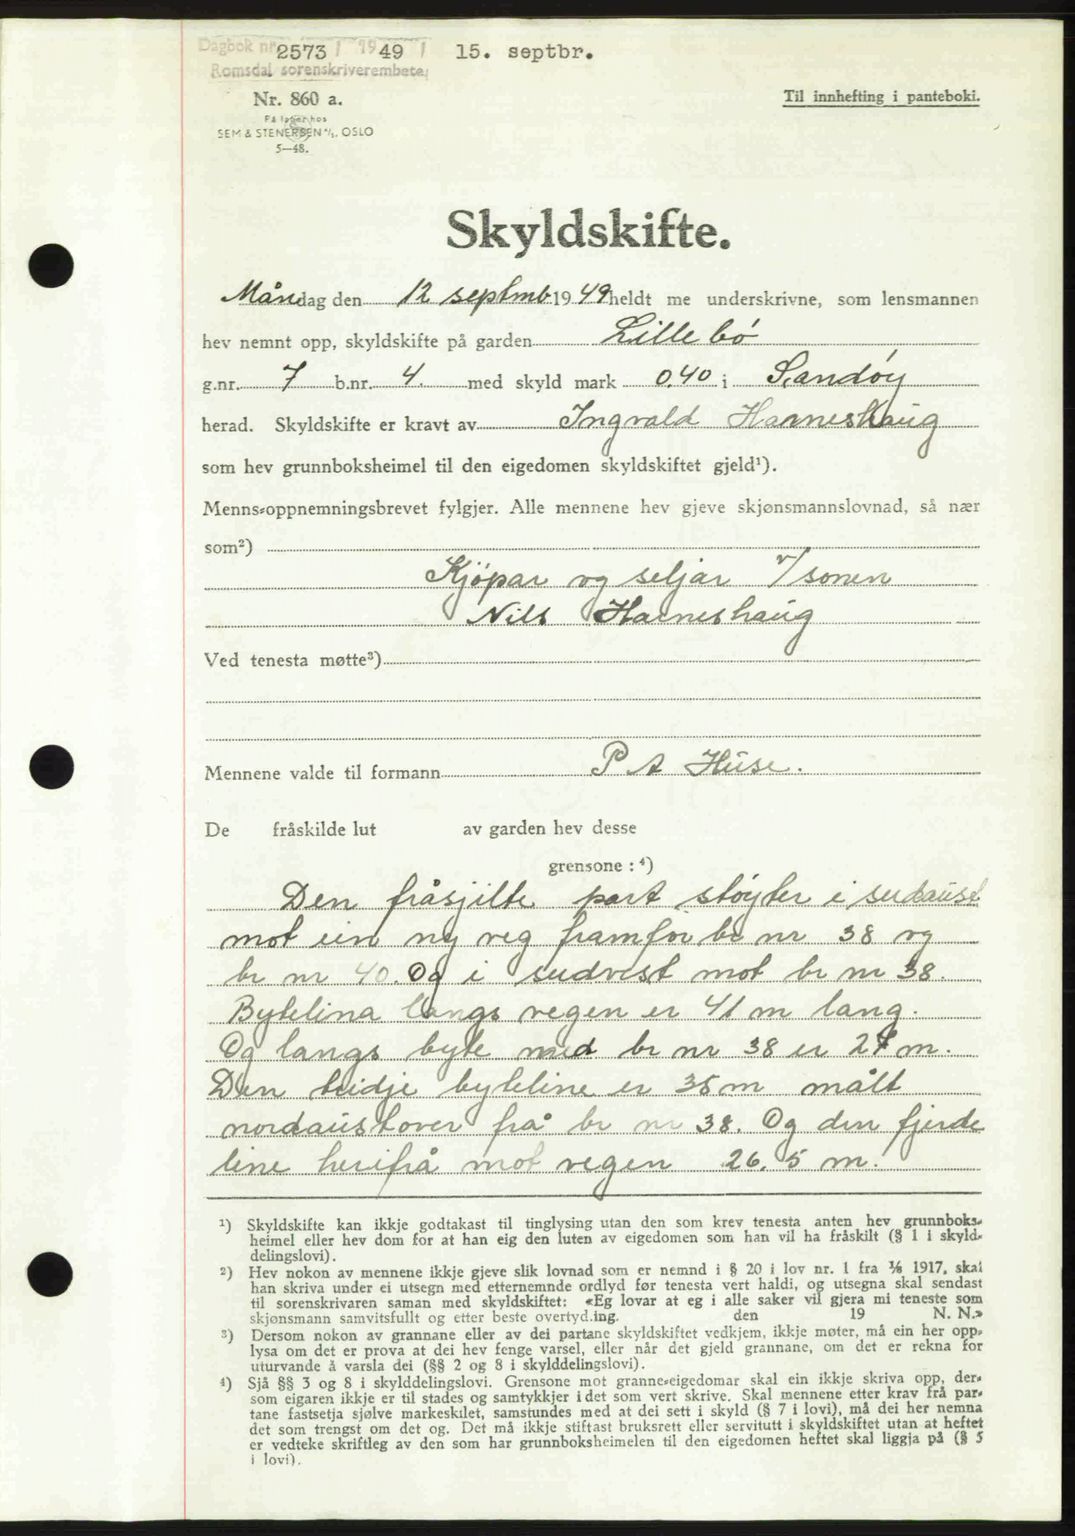 Dagbok nr. 2573 / 1949 / 15. septbr.
Romsdal sorenskriverembete
Nr. 860 a.
Til innhefting i panteboki.
På lager hos
SEM & STENERSEN A/S, OSLO
5—48.
Skyldskifte.
Måndag den 12 septmb. 1949 heldt me underskrivne, som lensmannen
hev nemnt opp, skyldskifte på garden Lillebö
g.nr. 7 b.nr. 4. med skyld mark 0.40 i Sandöy
herad. Skyldskifte er kravt av Ingvald Harneshaug
som hev grunnboksheimel til den eigedomen skyldskiftet gjeld¹).
Menns-oppnemningsbrevet fylgjer. Alle mennene hev gjeve skjønsmannslovnad, så nær
som²)
Kjöpar og seljar v/sonen
Nils Harneshaug
Ved tenesta møtte³)
Mennene valde til formann P A Huse.
De fråskilde lut av garden hev desse
grensone : ⁴)
Den fråsjilte part støyter i sudaust
mot ein ny veg framfor br nr 38 og
br nr 40. Og i sudvest mot br nr 38.
Bytelina langs vegen er 41 m lang.
Og langs byte med br nr 38 er 27 m.
Den tridje byteline er 35 m målt
nordaustover frå br nr 38. Og den fjerde
line herifrå mot vegen 26.5 m.
¹) Skyldskifte kan ikkje godtakast til tinglysing utan den som krev tenesta anten hev grunnboks-
heimel eller hev dom for at han eig den luten av eigedomen som han vil ha fråskilt (§ 1 i skyld-
delingslovi).
²) Hev nokon av mennene ikkje gjeve slik lovnad som er nemnd i § 20 i lov nr. 1 fra 1/6 1917, skal
han skriva under ei utsegn med etternemnde ordlyd før tenesta vert haldi, og utsegna skal sendast
til sorenskrivaren saman med skyldskiftet: «Eg lovar at eg i alle saker vil gjera mi teneste som
skjønsmann samvitsfullt og etter beste overtyding. den 19 N. N.»
³) Dersom nokon av grannane eller av dei partane skyldskiftet vedkjem, ikkje møter, må ein her opp-
lysa om det er prova at dei hev fenge varsel, eller når det gjeld grannane, om det er rekna for
uturvande å varsla dei (§§ 2 og 8 i skylddelingslovi).
⁴) Sjå §§ 3 og 8 i skylddelingslovi. Grensone mot granne-eigedomar skal ein ikkje skriva opp, der-
som eigaren ikkje er til stades og samtykkjer i det som vert skrive. Skal mennene etter krav frå par-
tane fastsetja sjølve markeskilet, samstundes med at dei sett i skyld (§ 7 i lovi), må dei her nemna
det som trengst om det og. Det må ikkje stiftast bruksrett eller servitutt i skyldskiftet utan at heftet
er vedteke skriftleg av den som har grunnboksheimelen til den eigedomen heftet skal liggja på (§ 5
i lovi).